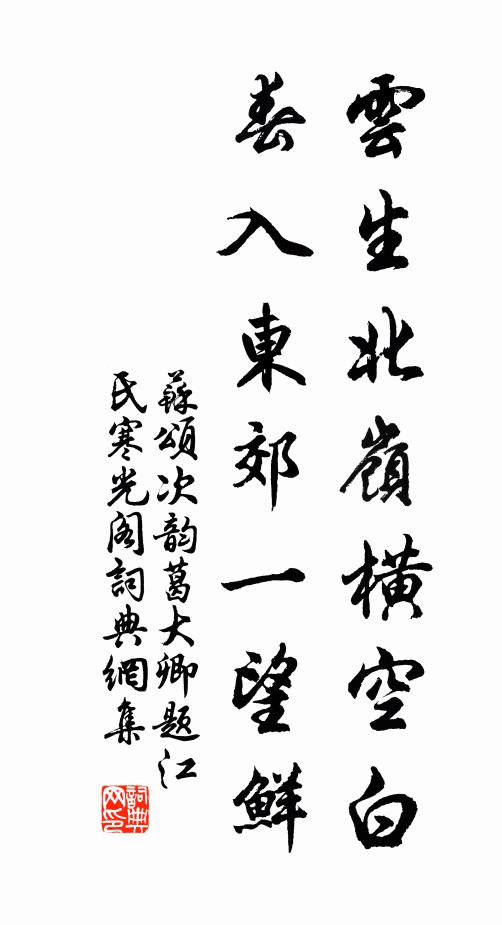 雲生北嶺橫空白
春入東郊一望鮮
蘇頌次韵葛大卿題江
民寒光阁詞典網集
詞典网印